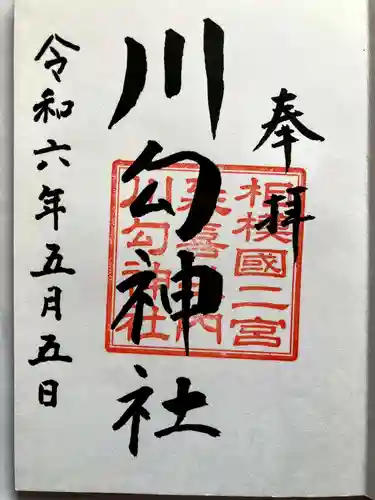 奉拝
相模國二宮
延喜式内
川勾神社
川勾神社
令和六年五月五日